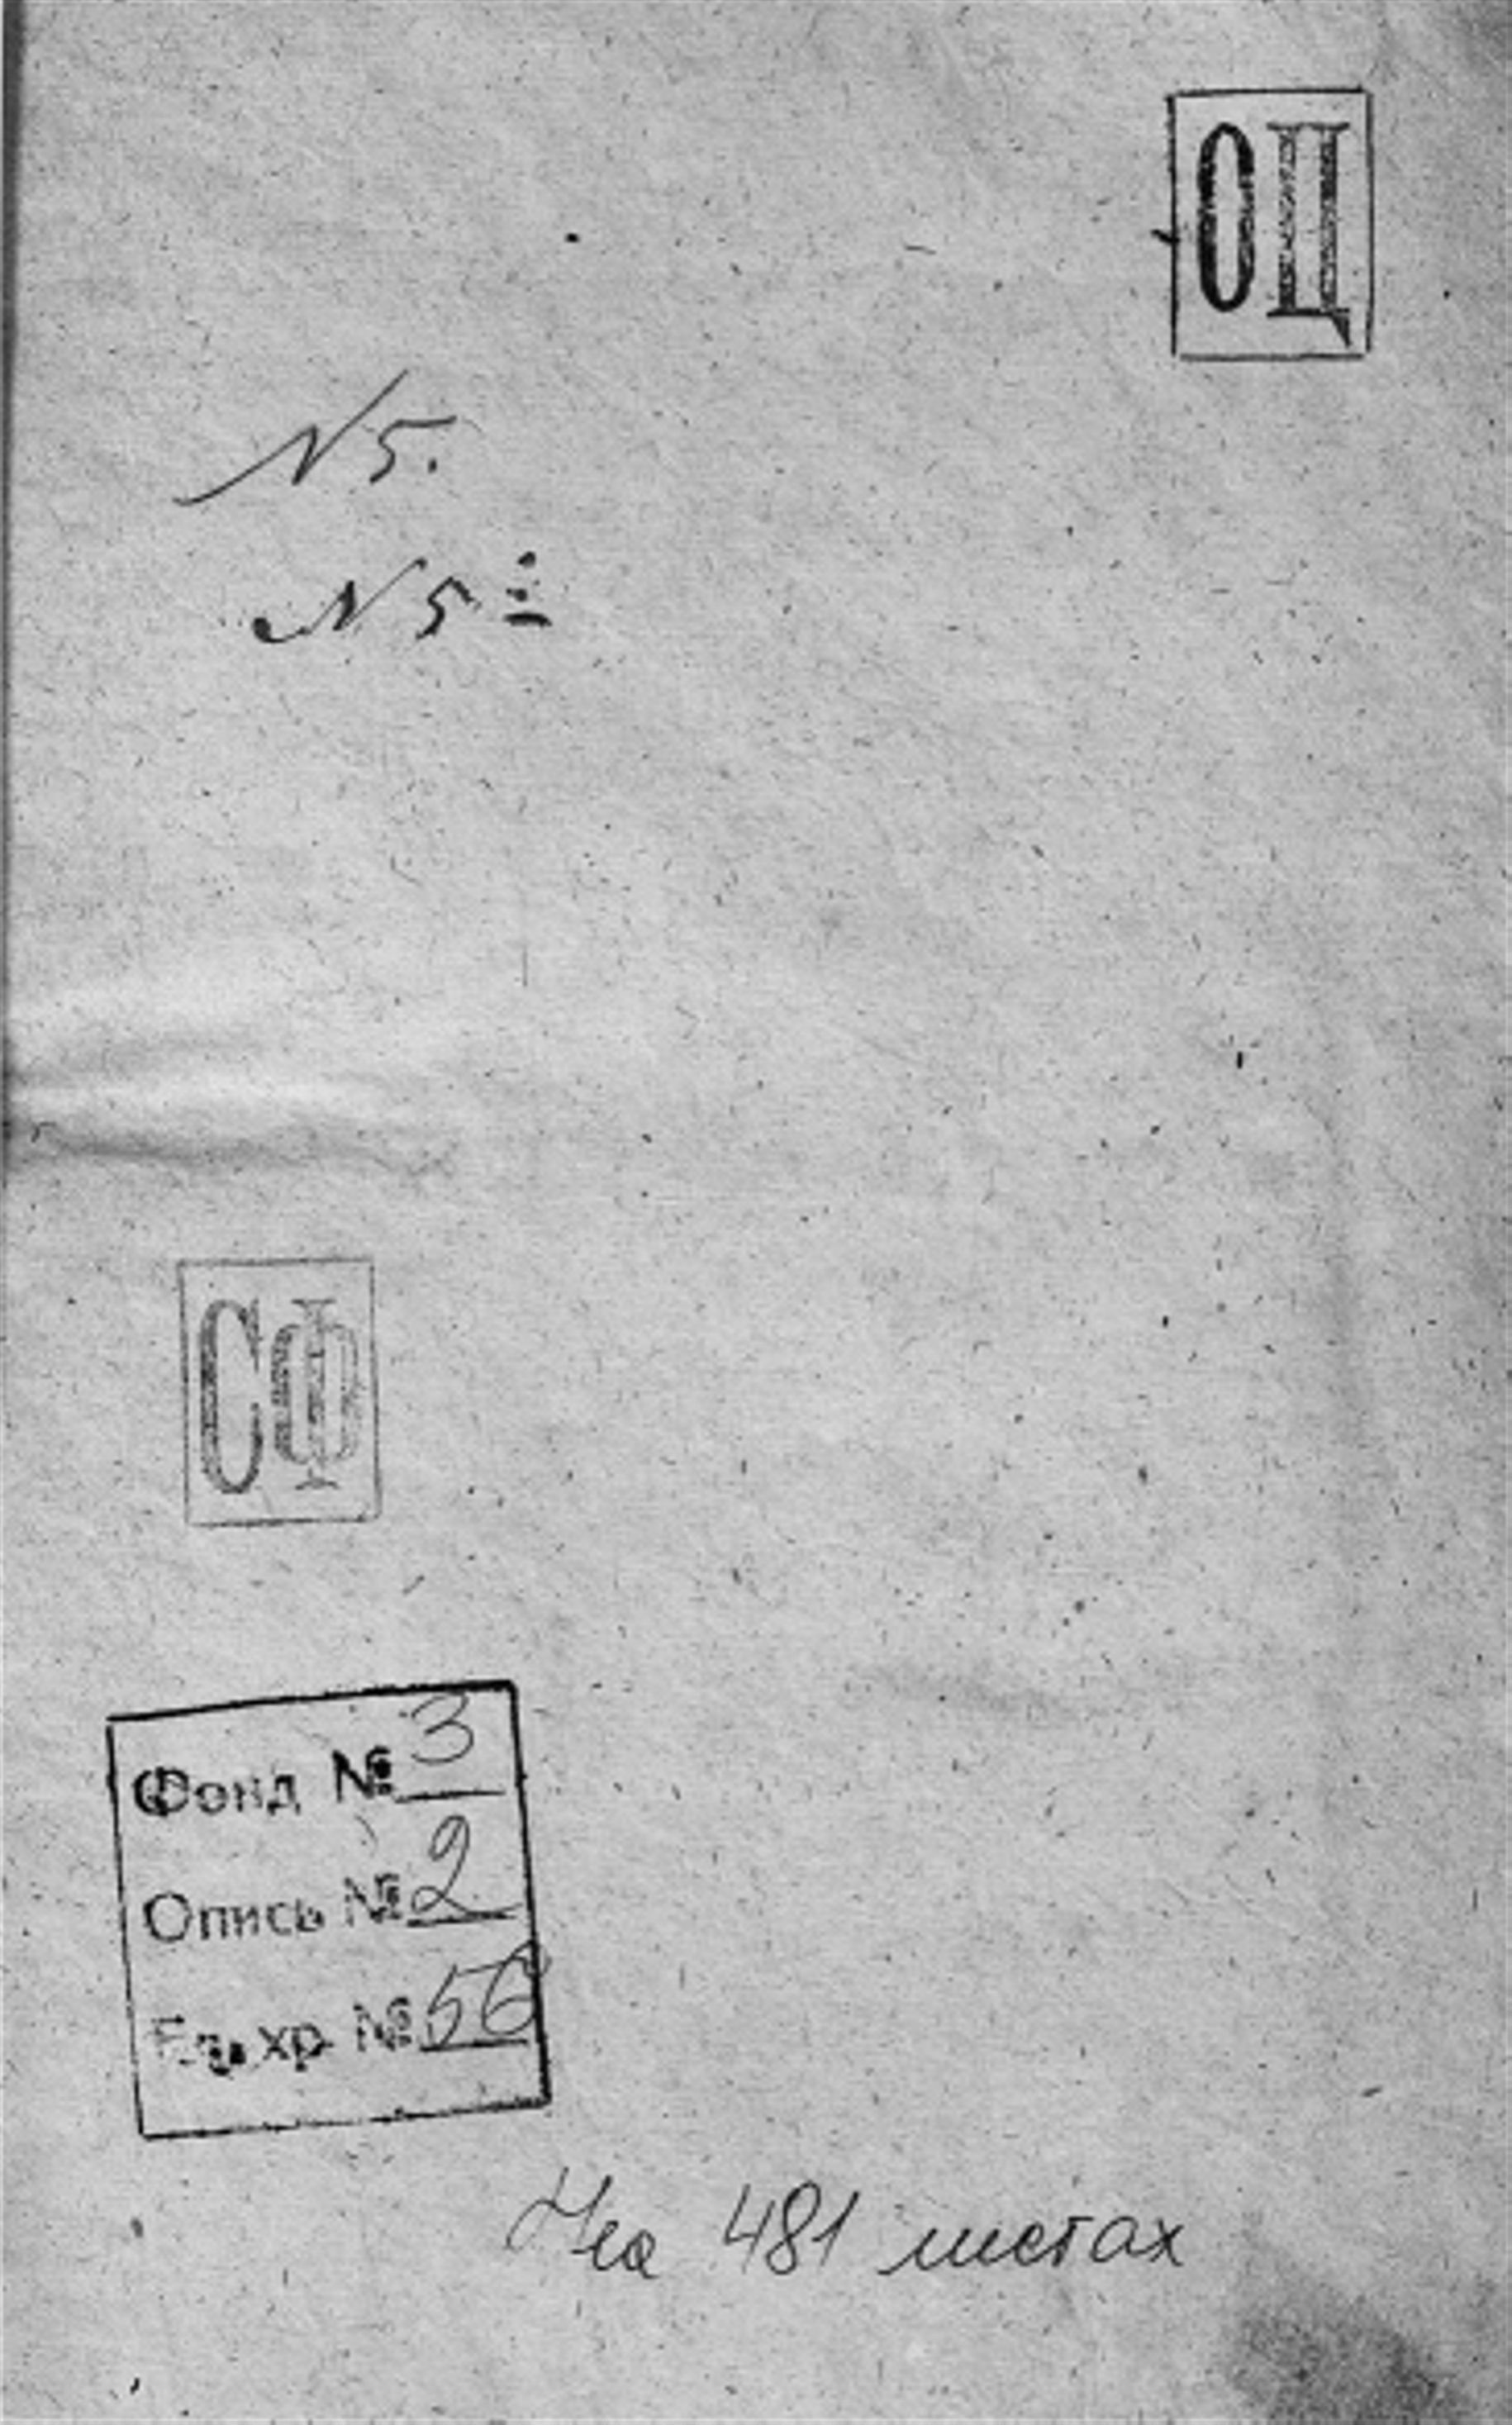 ОЦ
N 5.
N 5
СФ
Фонд № 3
Опись № 2
Ед. хр № 56
На 481 листах